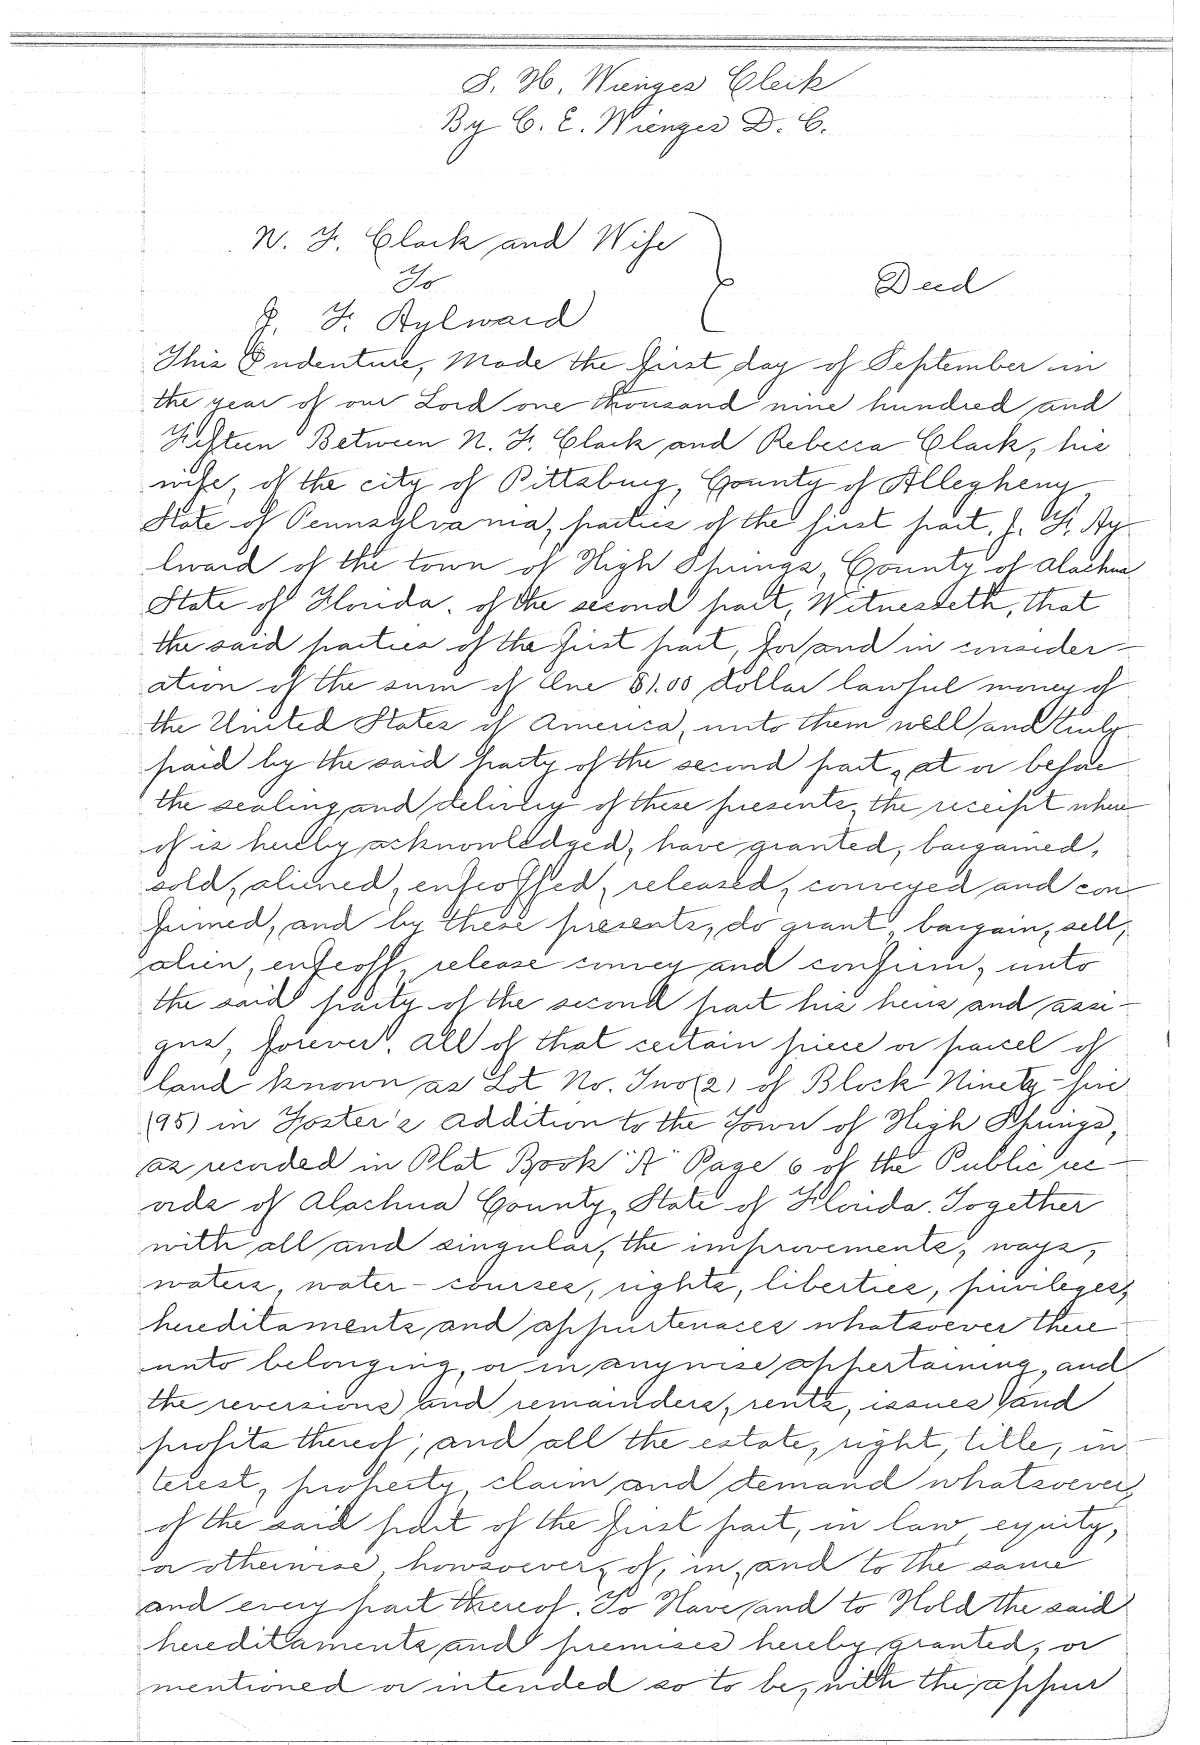 S. H. Wienges Clerk
By C. E. Wienges D. C.
N. F. Clark and Wife
To
J. F. Aylward
Deed
This Indenture, Made the first day of September in
the year of our Lord one thousand nine hundred and
Fifteen Between N. F. Clark and Rebecca Clark, his
wife, of the city of Pittsburg, County of Allegheny,
State of Pennsylvania, parties of the first part, J. F. Ay-
lward of the town of High Springs, County of Alachua
State of Florida. of the second part, Witnesseth, that
the said parties of the first part, for and in consider-
ation of the sum of One $1.00 dollar lawful money of
the United States of America, unto them well and truly
paid by the said party of the second part, at or before
the sealing and delivery of these presents, the receipt where
of is hereby acknowledged, have granted, bargained,
sold, aliened, enfeoffed, released, conveyed and con-
firmed, and by these presents, do grant, bargain, sell,
alien, enfeoff, release convey and confirm, unto
the said party of the second part his heirs and assi-
gns, forever. All of that certain piece or parcel of
land known as Lot No. Two (2) of Block Ninety-five
(95) in Foster's addition to the Town of High Springs,
as recorded in Plat Book "A" Page 6 of the Public rec-
ords of Alachua County, State of Florida. Together
with all and singular, the improvements, ways,
waters, water-courses, rights, liberties, privileges,
hereditaments and appurtenaces whatsoever there
unto belonging, or in anywise appertaining, and
the reversions and remainders, rents, issues and
profits thereof; and all the estate, right, title, in-
terest, property, claim and demand whatsoever,
of the said part of the first part, in law equity,
or otherwise, howsoever, of, in, and to the same
and every part thereof. To Have and to Hold the said
hereditaments and premises hereby granted, or
mentioned or intended so to be, with the appur